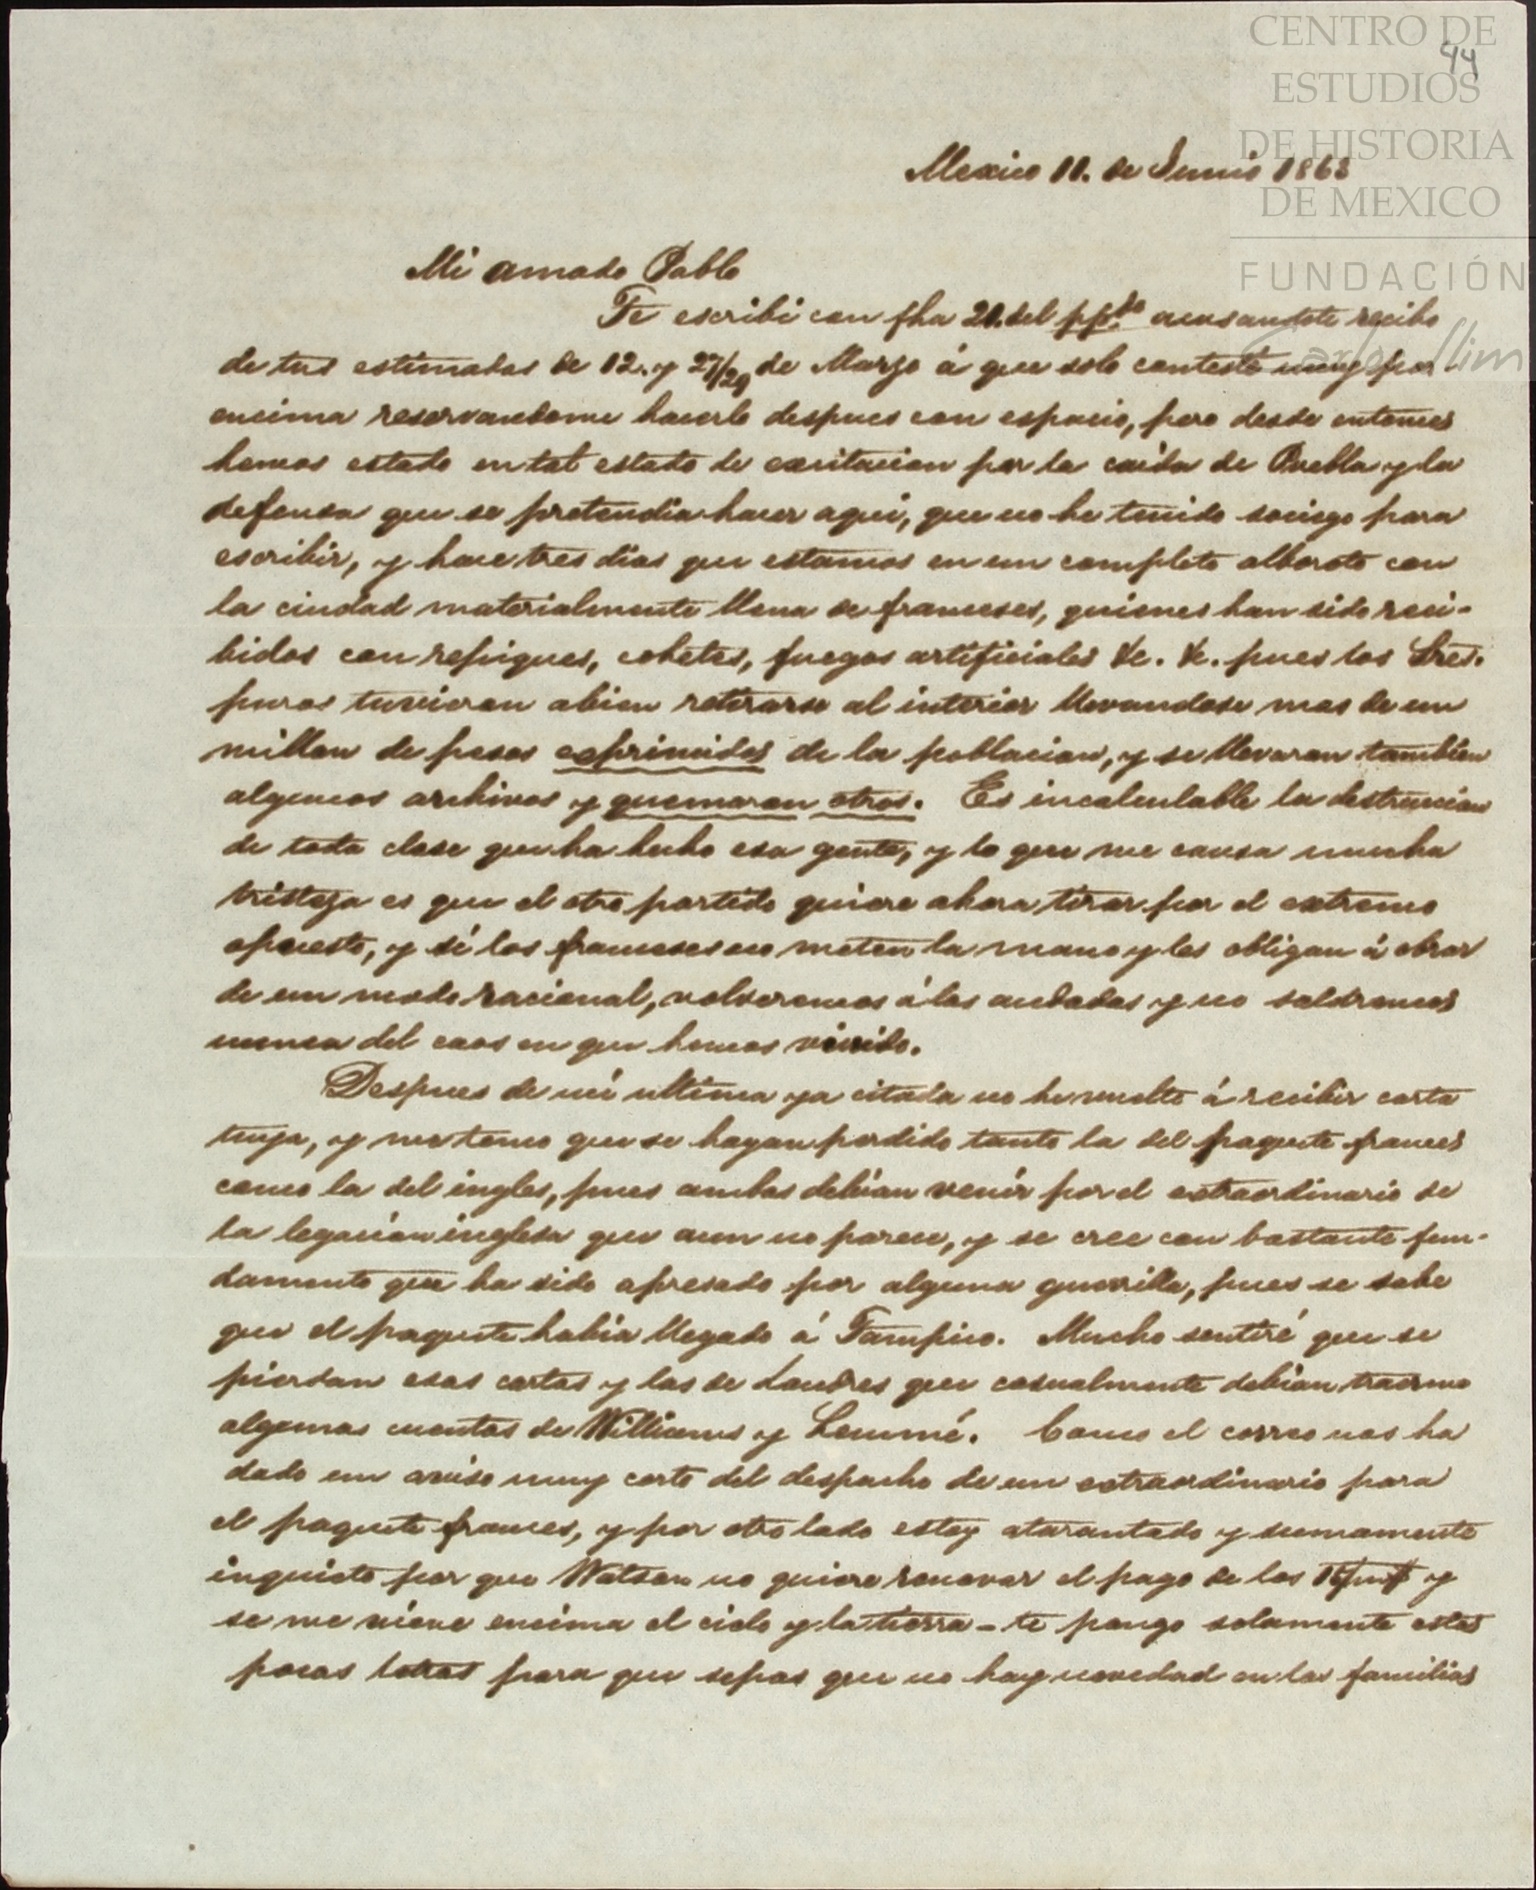 CENTRO DE
ESTUDIOS
DE HISTORIA
DE MEXICO
FUNDACIÓN
Carlos Slim
44
Mexico 11. de Junio 1863
Mi amado Pablo
Te escribi con fha 21. del ppdo. acusandote recibo
de tus estimadas de 12. y 27/29 de Marzo á que solo contesté muy por
encima reservandome hacerlo despues con espacio, pero desde entonces
hemos estado en tal estado de excitacion por la caida de Puebla y la
defensa que se pretendia hacer aqui, que no he tenido sociego para
escribir, y hace tres dias que estamos en un completo alboroto con
la ciudad materialmente llena de franceses, quienes han sido reci-
bidos con repiques, cohetes, fuegos artificiales &c. &. pues los Sres.
puros tuvieron abien retirarse al interior llevandose mas de un
millon de pesos esprimidos de la poblacion, y se llevaron tambien
algunos archivos y quemaron otros. Es incalculable la destruccion
de toda clase que ha hecho esa gente, y lo que me causa mucha
tristeza es que el otro partido quiere ahora tirar por el extremo
opuesto, y si los franceses no meten la mano y les obligan á obrar
de un modo racional, volveremos á las andadas y no saldremos
nunca del caos en que hemos vivido.
Despues de mi ultima ya citada no he vuelto á recibir carta
tuya, y me temo que se hayan perdido tanto la del paquete frances
como la del ingles, pues ambas debian venir por el extraordinario de
la legacion inglesa que aun no parece, y se cree con bastante fun-
damento que ha sido apresado por alguna guerrilla, pues se sabe
que el paquete habia llegado á Tampico. Mucho sentiré que se
pierdan esas cartas y las de Londres que casualmente debian traerme
algunas cuentas de Williams y Lemmé. Como el correo nos ha
dado un aviso muy corto del despacho de un extraordinario para
el paquete frances, y por otro lado estoy atarantado y sumamente
inquieto por que Watson no quiere renovar el pago de los y
se me viene encima el cielo y la tierra - te pongo solamente estas
pocas letras para que sepas que no hay novedad en las familias